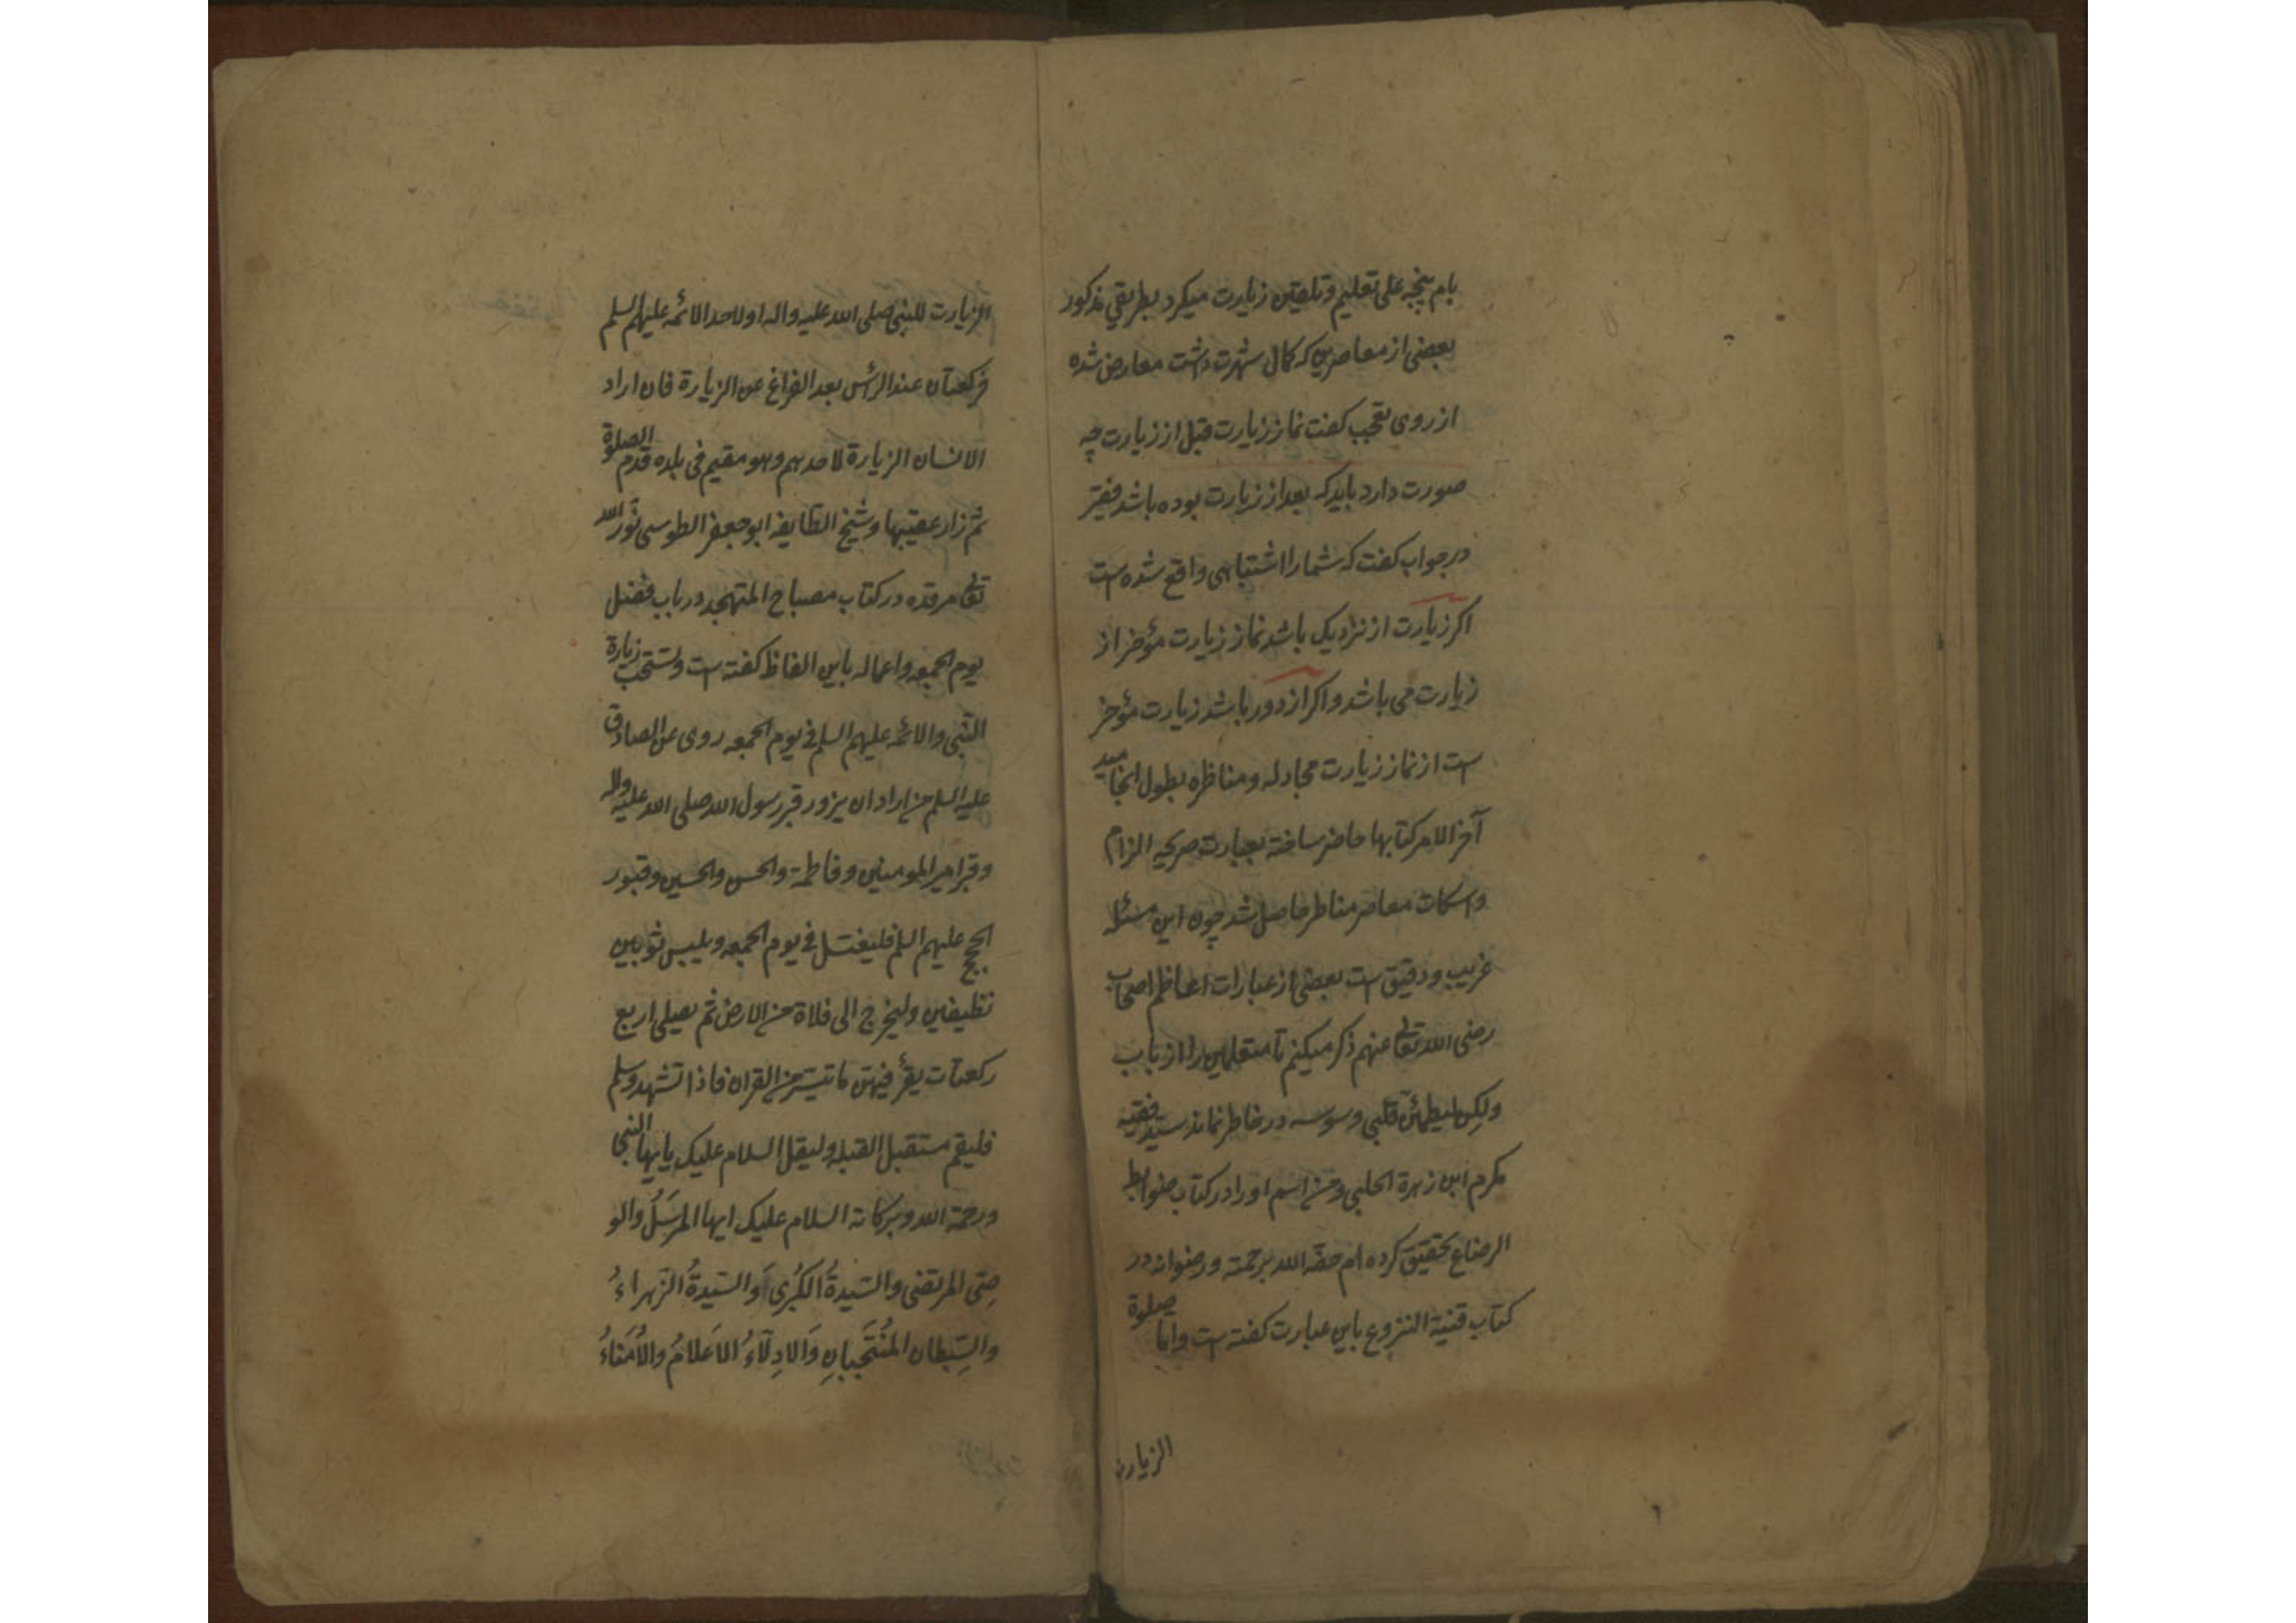 بام پنجه علی تعلیم و تلقین زیارت میکرد بطریق مذکور
بعضی از معاصرین که کمال شهرت داشت معارض شده
از روی تعجب کفت نماز زیارت قبل از زیارت چه
صورت دارد باید که بعد از زیارت بوده باشد فقیر
در جواب کفت که شما را اشتباهی واقع شده است
اکر زیارت از نزدیک باشد نماز زیارت مؤخر از
زیارت می باشد و اکر از دور باشد زیارت مؤخر
است از نماز زیارت مجادله و مناظره بطول انجامید
آخر الامر کتابها حاضر ساخته بعبارت صریحه الزام
و اسکات معاصر مناظر حاصل شد چون این مسئله
غریب و دقیق است بعضی از عبارات اعاظم اصحاب
رضی الله تعالی عنهم ذکر میکنم تا متعلمین را از باب
ولکن لیطمئن قلبی وسوسه در خاطر نماند سید فقیه
مکرم ابن زهرة الحلبی و من اسم او را در کتاب ضوابط
الرضاع تحقیق کرده ام حفّه الله برحمته و رضوانه در
کتاب قنیة النزوع باین عبارت کفته است واما صلوة
الزیارت
الزیارت للنبی صلی الله علیه واله او لاحد الائمه علیهم السلم
فرکعتان عند الرأس بعد الفراغ عن الزیارة فان اراد
الانسان الزیارة لاحدهم وهو مقیم فی بلده قدم الصلوة
ثم زار عقیبها و شیخ الطایفه ابو جعفر الطوسی نور الله
تعالی مرقده در کتاب مصباح المتهجد در باب فضل
یوم الجمعه و اعماله باین الفاظ کفته است ویستحب زیارة
النبی والائمه علیهم السلم فی یوم الجمعه روی عن الصادق
علیه السلم من اراد ان یزور قبر رسول الله صلی الله علیه واله
وقبر امیر المومنین وفاطمة والحسن والحسین وقبور
الحجج علیهم السلم فلیغتسل فی یوم الجمعه ویلبس ثوبین
نظیفین ولیخرج الی فلاة من الارض ثم یصلی اربع
رکعات یقرأ فیهن ما تیسر من القران فاذا تشهد وسلم
فلیقم مستقبل القبله ولیقل السلام علیک یا ایها النبی
ورحمة الله وبرکاته السلام علیک ایها المرسَلُ والو
صِی المرتضی والسّیدةُ الکُبری وَالسّیدةُ الزّهراءُ
والسِّبطان المُنتَجَبانِ وَالادِلّاءُ الاَعلامُ والاُمَناءُ